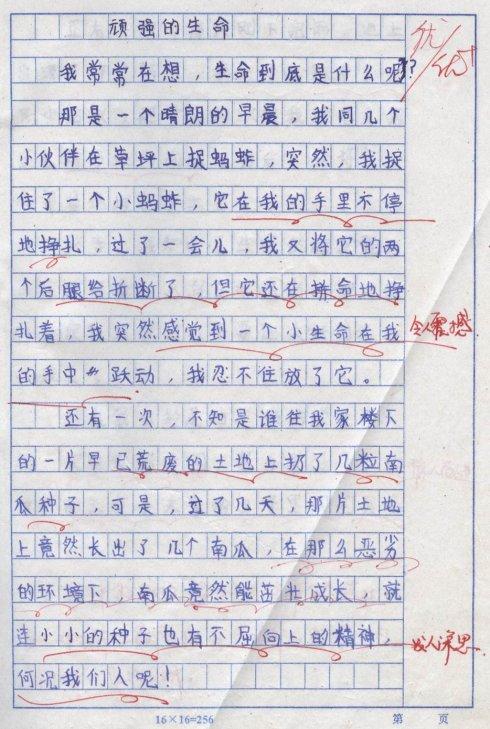 顽强的生命
我常常在想，生命到底是什么呢？
那是一个晴朗的早晨，我同几个
小伙伴在草坪上捉蚂蚱，突然，我捉
住了一个小蚂蚱，它在我的手里不停
地挣扎，过了一会儿，我又将它的两
个后腿给折断了，但它还在拼命地挣
扎着，我突然感觉到一个小生命在我
的手中“跃动，我忍不住放了它。
还有一次，不知是谁往我家楼下
的一片早已荒废的土地上扔了几粒南
瓜种子，可是，过了几天，那片土地
上竟然长出了几个南瓜，在那么恶劣
的环境下，南瓜竟然能茁壮成长，就
连小小的种子也有不屈向上的精神，
何况我们人呢！
优
令人震撼
发人深思
16×16=256
第 页